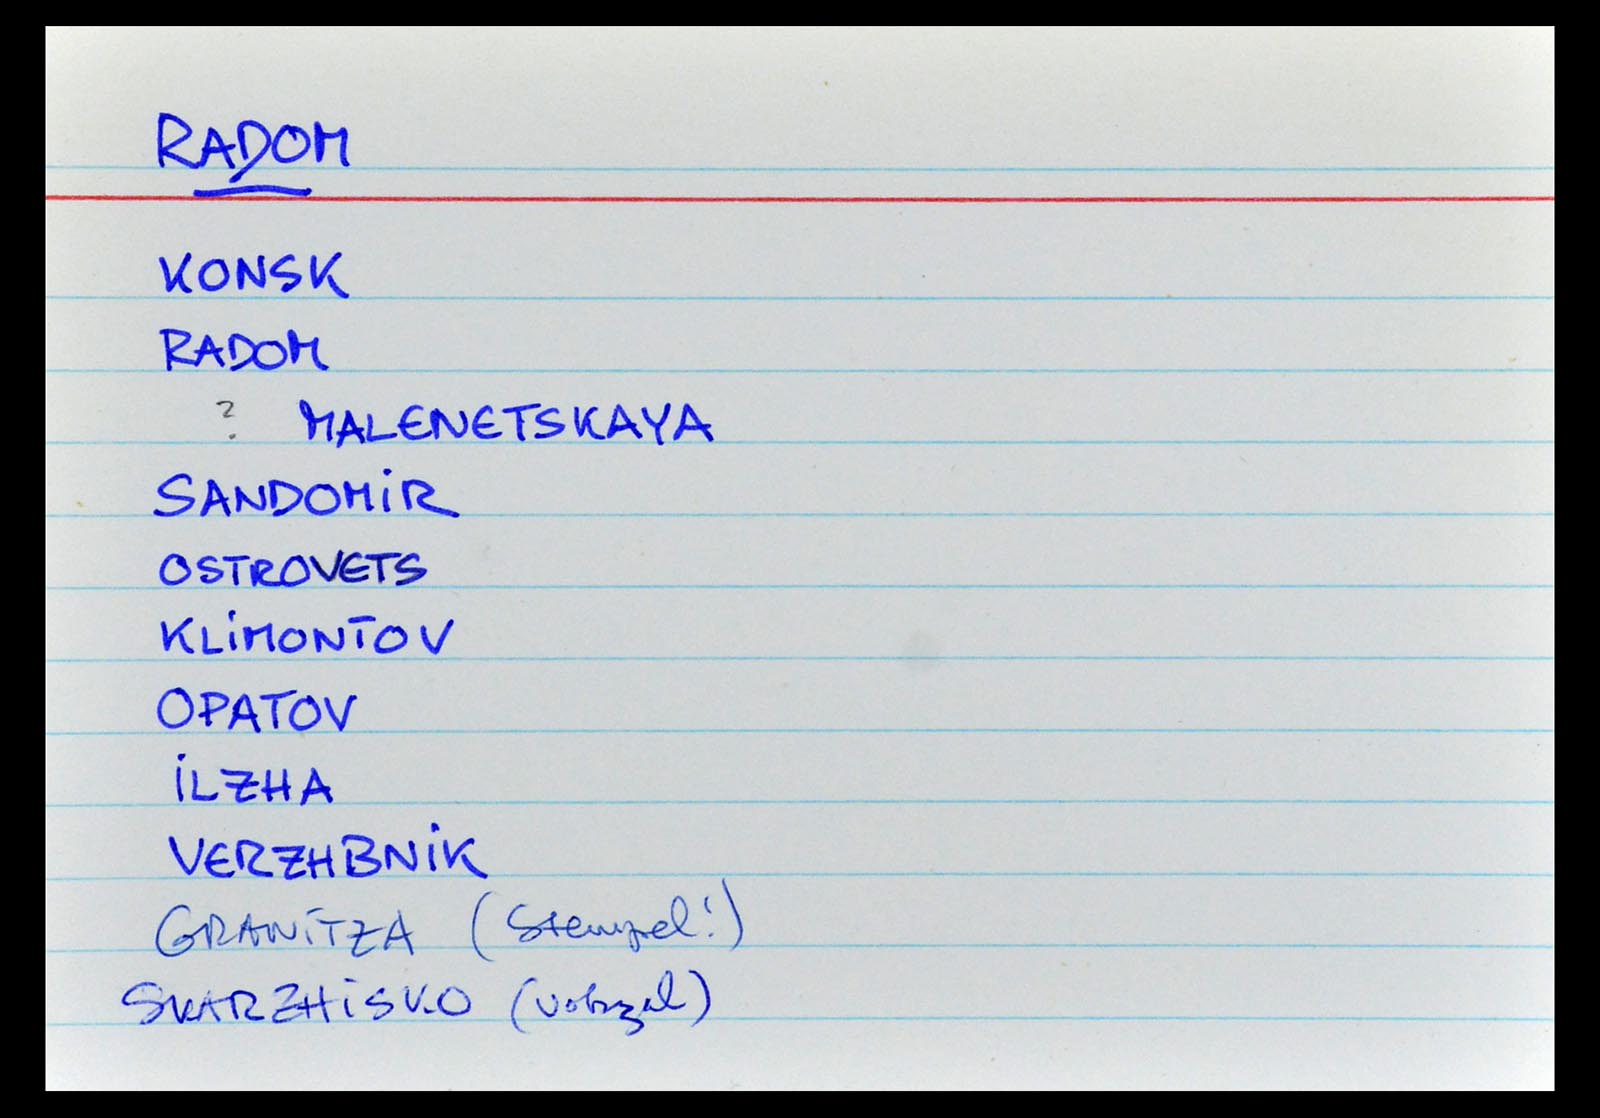 RADOM
KONSK
RADOM
? MALENETSKAYA
SANDOMIR
OSTROVETS
KLIMONTOV
OPATOV
ILZHA
VERZHBNIK
GRANITZA (Stempel!)
SKARZHISKO (vokzal)